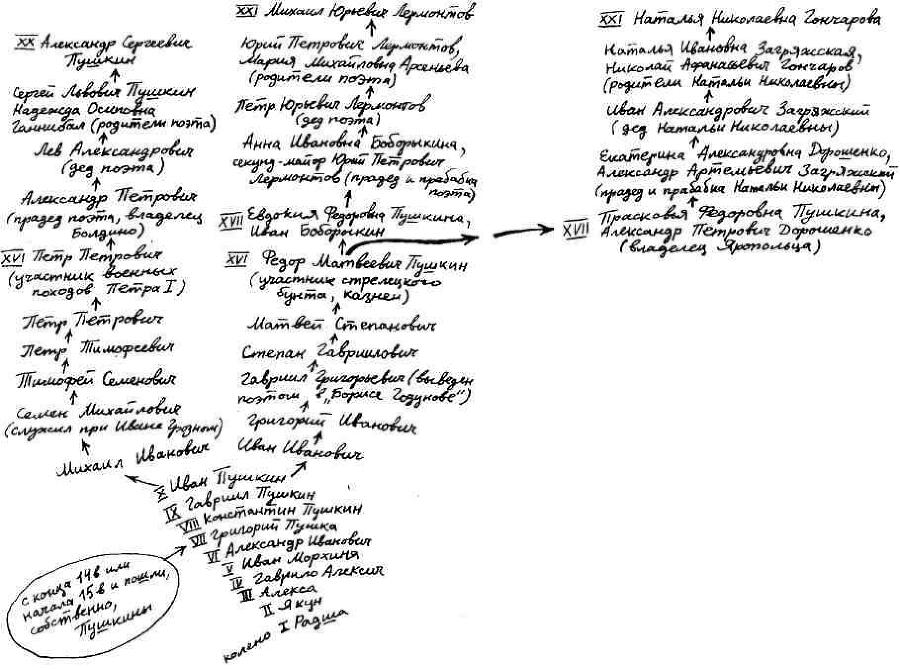 XX Александр Сергеевич
Пушкин
Сергей Львович Пушкин
Надежда Осиповна
Ганнибал (родители поэта)
Лев Александрович
(дед поэта)
Александр Петрович
(прадед поэта, владелец
Болдино)
XVI Петр Петрович
(участник военных
походов Петра I)
Петр Петрович
Петр Тимофеевич
Тимофей Семенович
Семен Михайлович
(служил при Иване Грозном)
Михаил Иванович
XXI Михаил Юрьевич Лермонтов
Юрий Петрович Лермонтов,
Мария Михайловна Арсеньева
(родители поэта)
Петр Юрьевич Лермонтов
(дед поэта)
Анна Ивановна Боборыкина,
секунд-майор Юрий Петрович
Лермонтов (прадед и прабабка
поэта)
XVII Евдокия Федоровна Пушкина,
Иван Боборыкин
XVI Федор Матвеевич Пушкин
(участник стрелецкого
бунта, казнен)
Матвей Степанович
Степан Гавриилович
Гавриил Григорьевич (выведен
поэтом в „Борисе Годунове")
Григорий Иванович
Иван Иванович
XXI Наталья Николаевна Гончарова
Наталья Ивановна Загряжская,
Николай Афанасьевич Гончаров
(родители Натальи Николаевны)
Иван Александрович Загряжский
(дед Натальи Николаевны)
Екатерина Александровна Дорошенко,
Александр Артемьевич Загряжский
(прадед и прабабка Натальи Николаевны)
XVII Прасковья Федоровна Пушкина,
Александр Петрович Дорошенко
(владелец Яропольца)
X Иван Пушкин
IX Гавриил Пушкин
VIII Константин Пушкин
VII Григорий Пушка
VI Александр Иванович
V Иван Морхиня
IV Гаврило Алексич
III Алекса
II Якун
колено I Радша
с конца 14в или
начала 15в и пошли,
собственно,
Пушкины